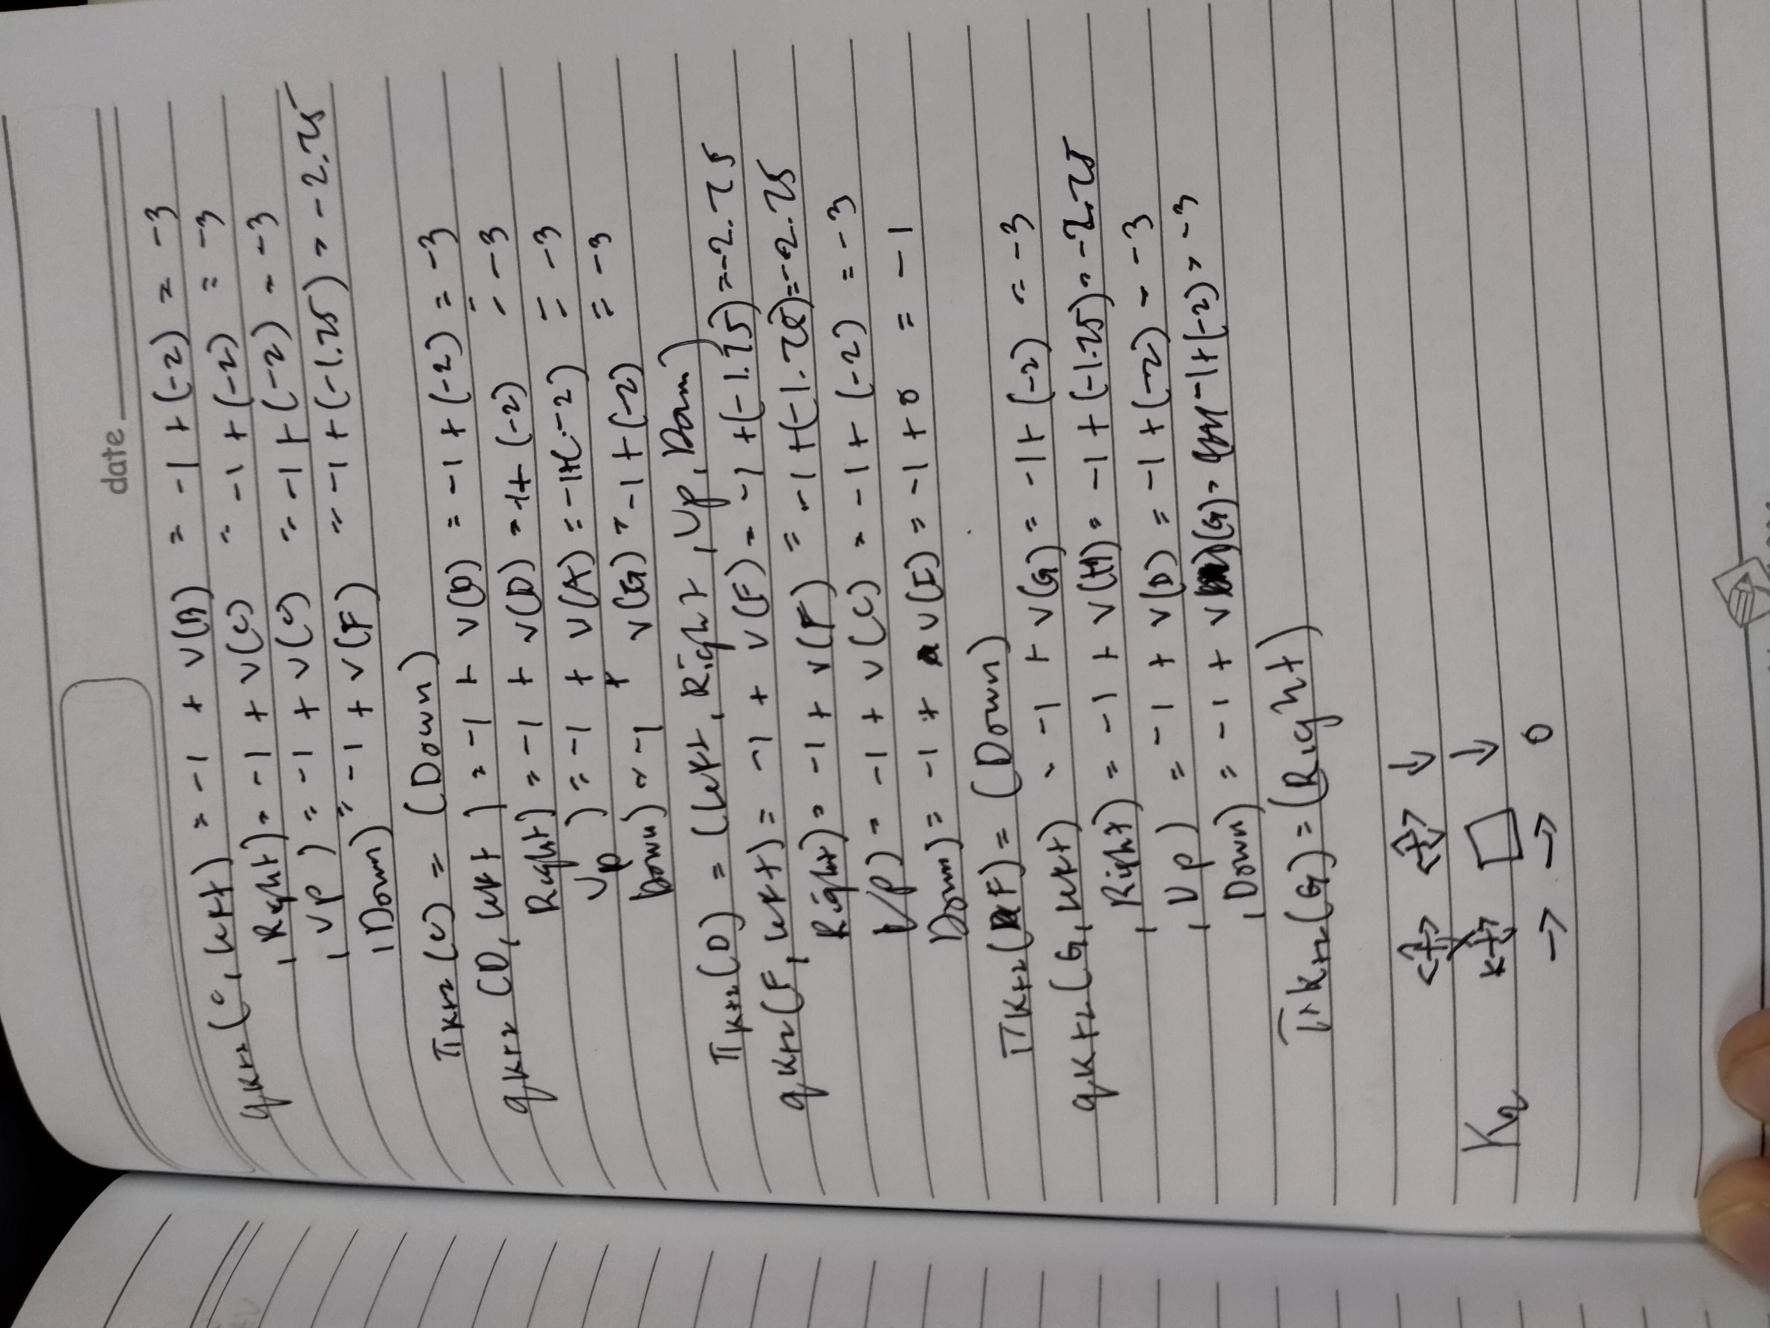 date
q_{k+2}(C, left) = -1 + V(B) = -1 + (-2) = -3
, Right) = -1 + V(C) = -1 + (-2) = -3
, Up) = -1 + V(C) = -1 + (-2) = -3
, Down) = -1 + V(F) = -1 + (-1.25) = -2.25
π_{k+2}(C) = (Down)
q_{k+2}(D, left) = -1 + V(D) = -1 + (-2) = -3
Right) = -1 + V(D) = -1+ (-2) = -3
Up) = -1 + V(A) = -1+(-2) = -3
Down) = -1 + V(G) = -1 + (-2) = -3
π_{k+2}(D) = (left, Right, Up, Down)
q_{k+2}(F, left) = -1 + V(F) = -1 + (-1.25) = -2.25
Right) = -1 + V(F) = -1 + (-1.25) = -2.25
Up) = -1 + V(C) = -1 + (-2) = -3
Down) = -1 + V(I) = -1 + 0 = -1
π_{k+2}(F) = (Down)
q_{k+2}(G, left) = -1 + V(G) = -1 + (-2) = -3
, Right) = -1 + V(H) = -1 + (-1.25) = -2.25
, Up) = -1 + V(D) = -1 + (-2) = -3
, Down) = -1 + V(G) = -1 + (-2) = -3
π_{k+2}(G) = (Right)
↓
K₂ □ ↓
→ → 0